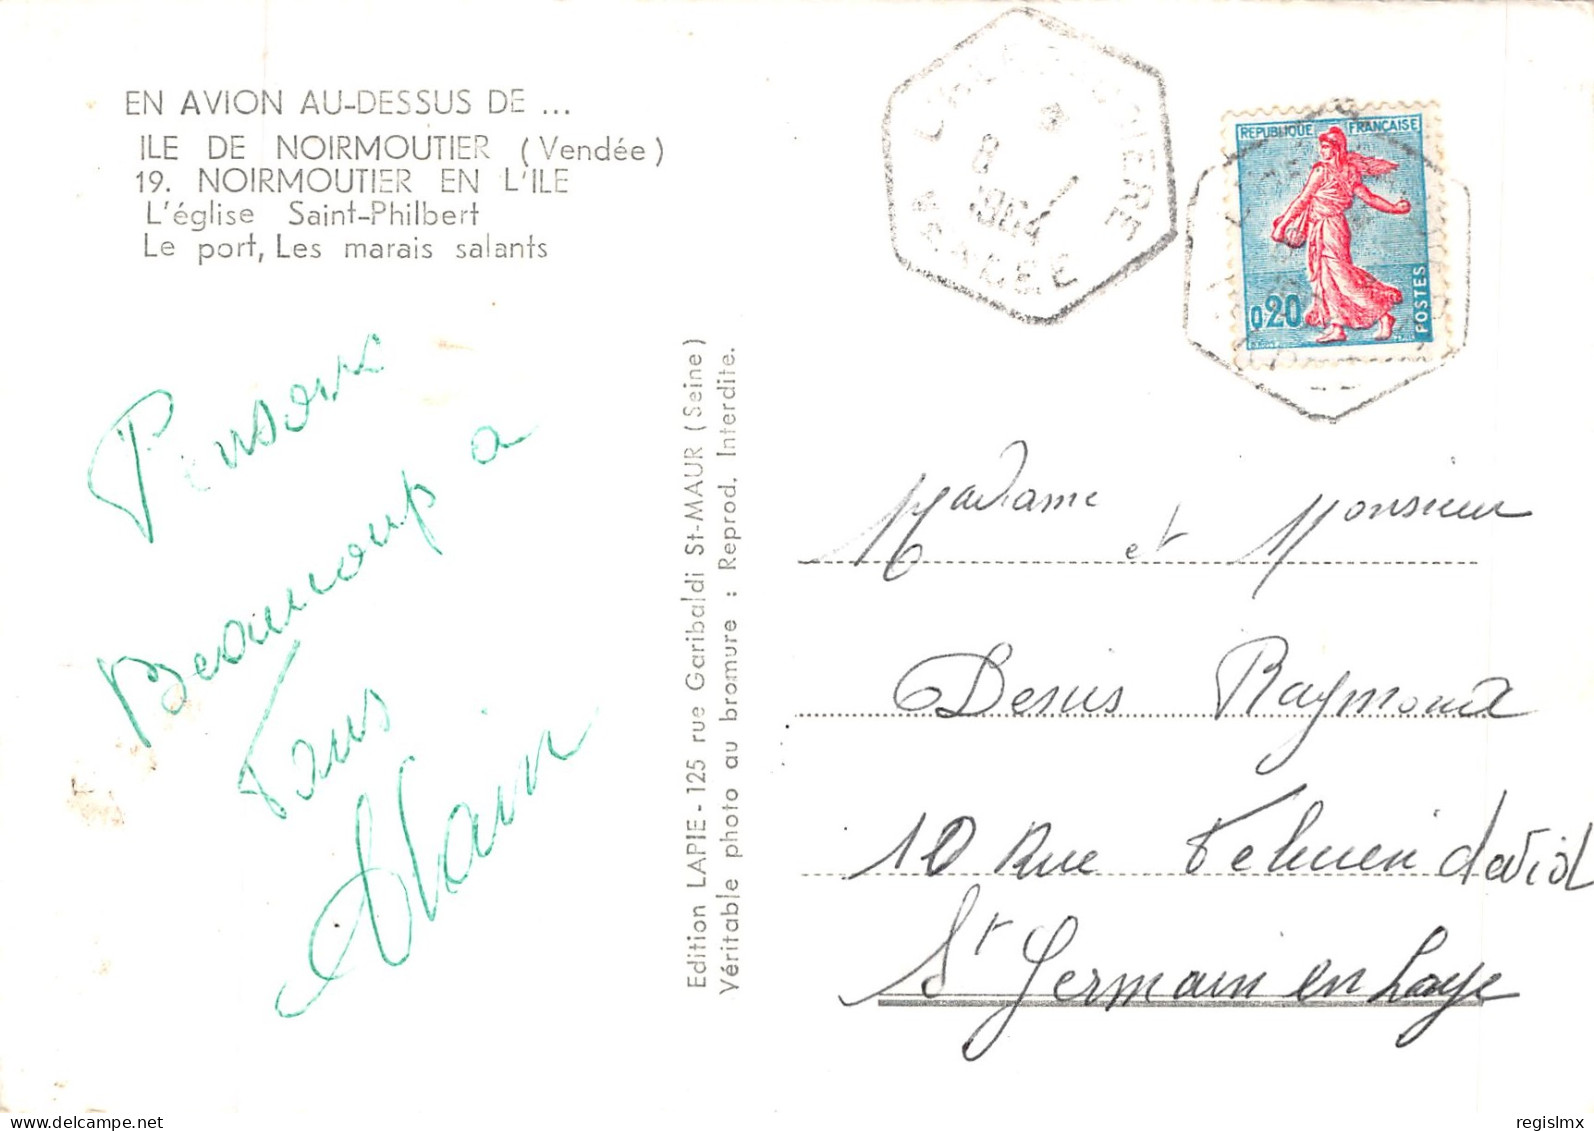 EN AVION AU-DESSUS DE ...
ILE DE NOIRMOUTIER (Vendée)
19. NOIRMOUTIER EN L'ILE
L'église Saint-Philbert
Le port, Les marais salants
Pensons
Beaucoup a
Tous
Alain
Edition LAPIE - 125 rue Garibaldi St-MAUR (Seine)
Véritable photo au bromure : Reprod. Interdite.
8
1964
VENDEE
REPUBLIQUE FRANÇAISE
0,20
POSTES
Madame et Monsieur
Denis Raymond
10 Rue david
St Germain en Laye
regislmx
delcampe.net